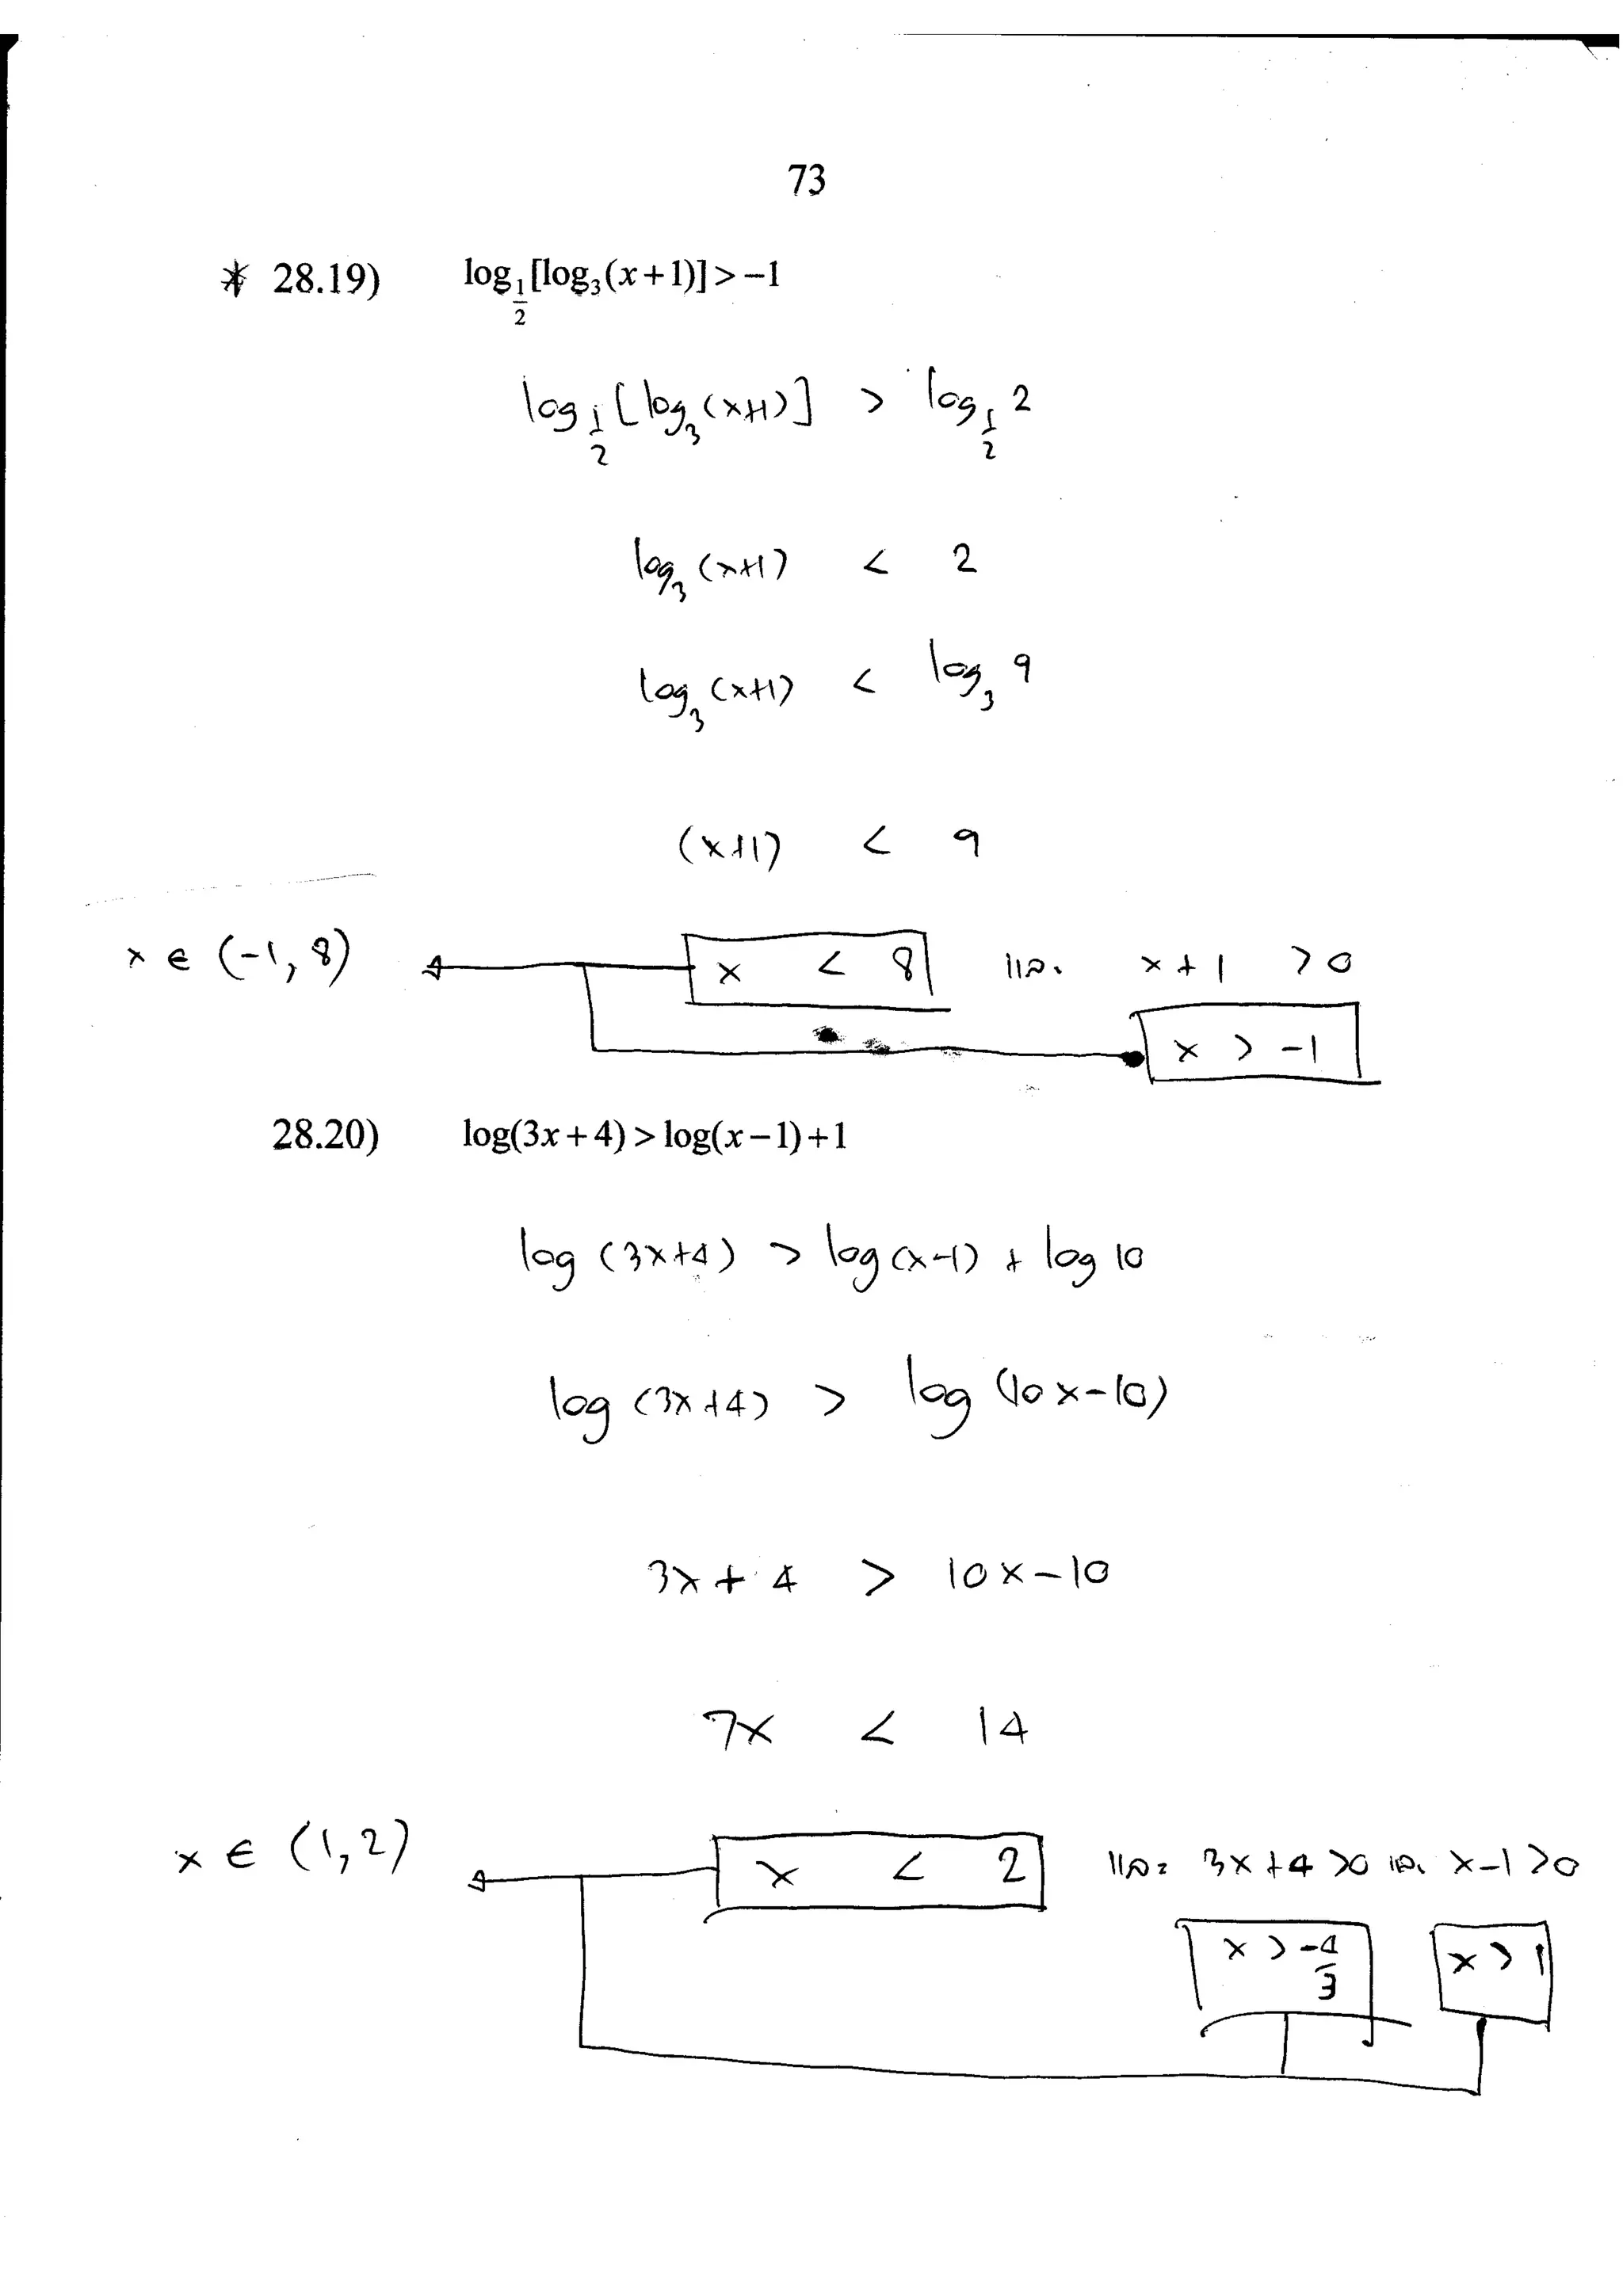 73
* 28.19) log_{1/2}[log_3(x+1)] > -1
log_{1/2}[log_3(x+1)] > log_{1/2} 2
log_3(x+1) < 2
log_3(x+1) < log_3 9
(x+1) < 9
x ∈ (-1, 8) x < 8 และ x + 1 > 0
x > -1
28.20) log(3x+4) > log(x-1)+1
log (3x+4) > log (x-1) + log 10
log (3x+4) > log (10x-10)
3x + 4 > 10x-10
7x < 14
x ∈ (1, 2) x < 2 และ 3x+4 >0 และ x-1 >0
x > -4/3 x > 1